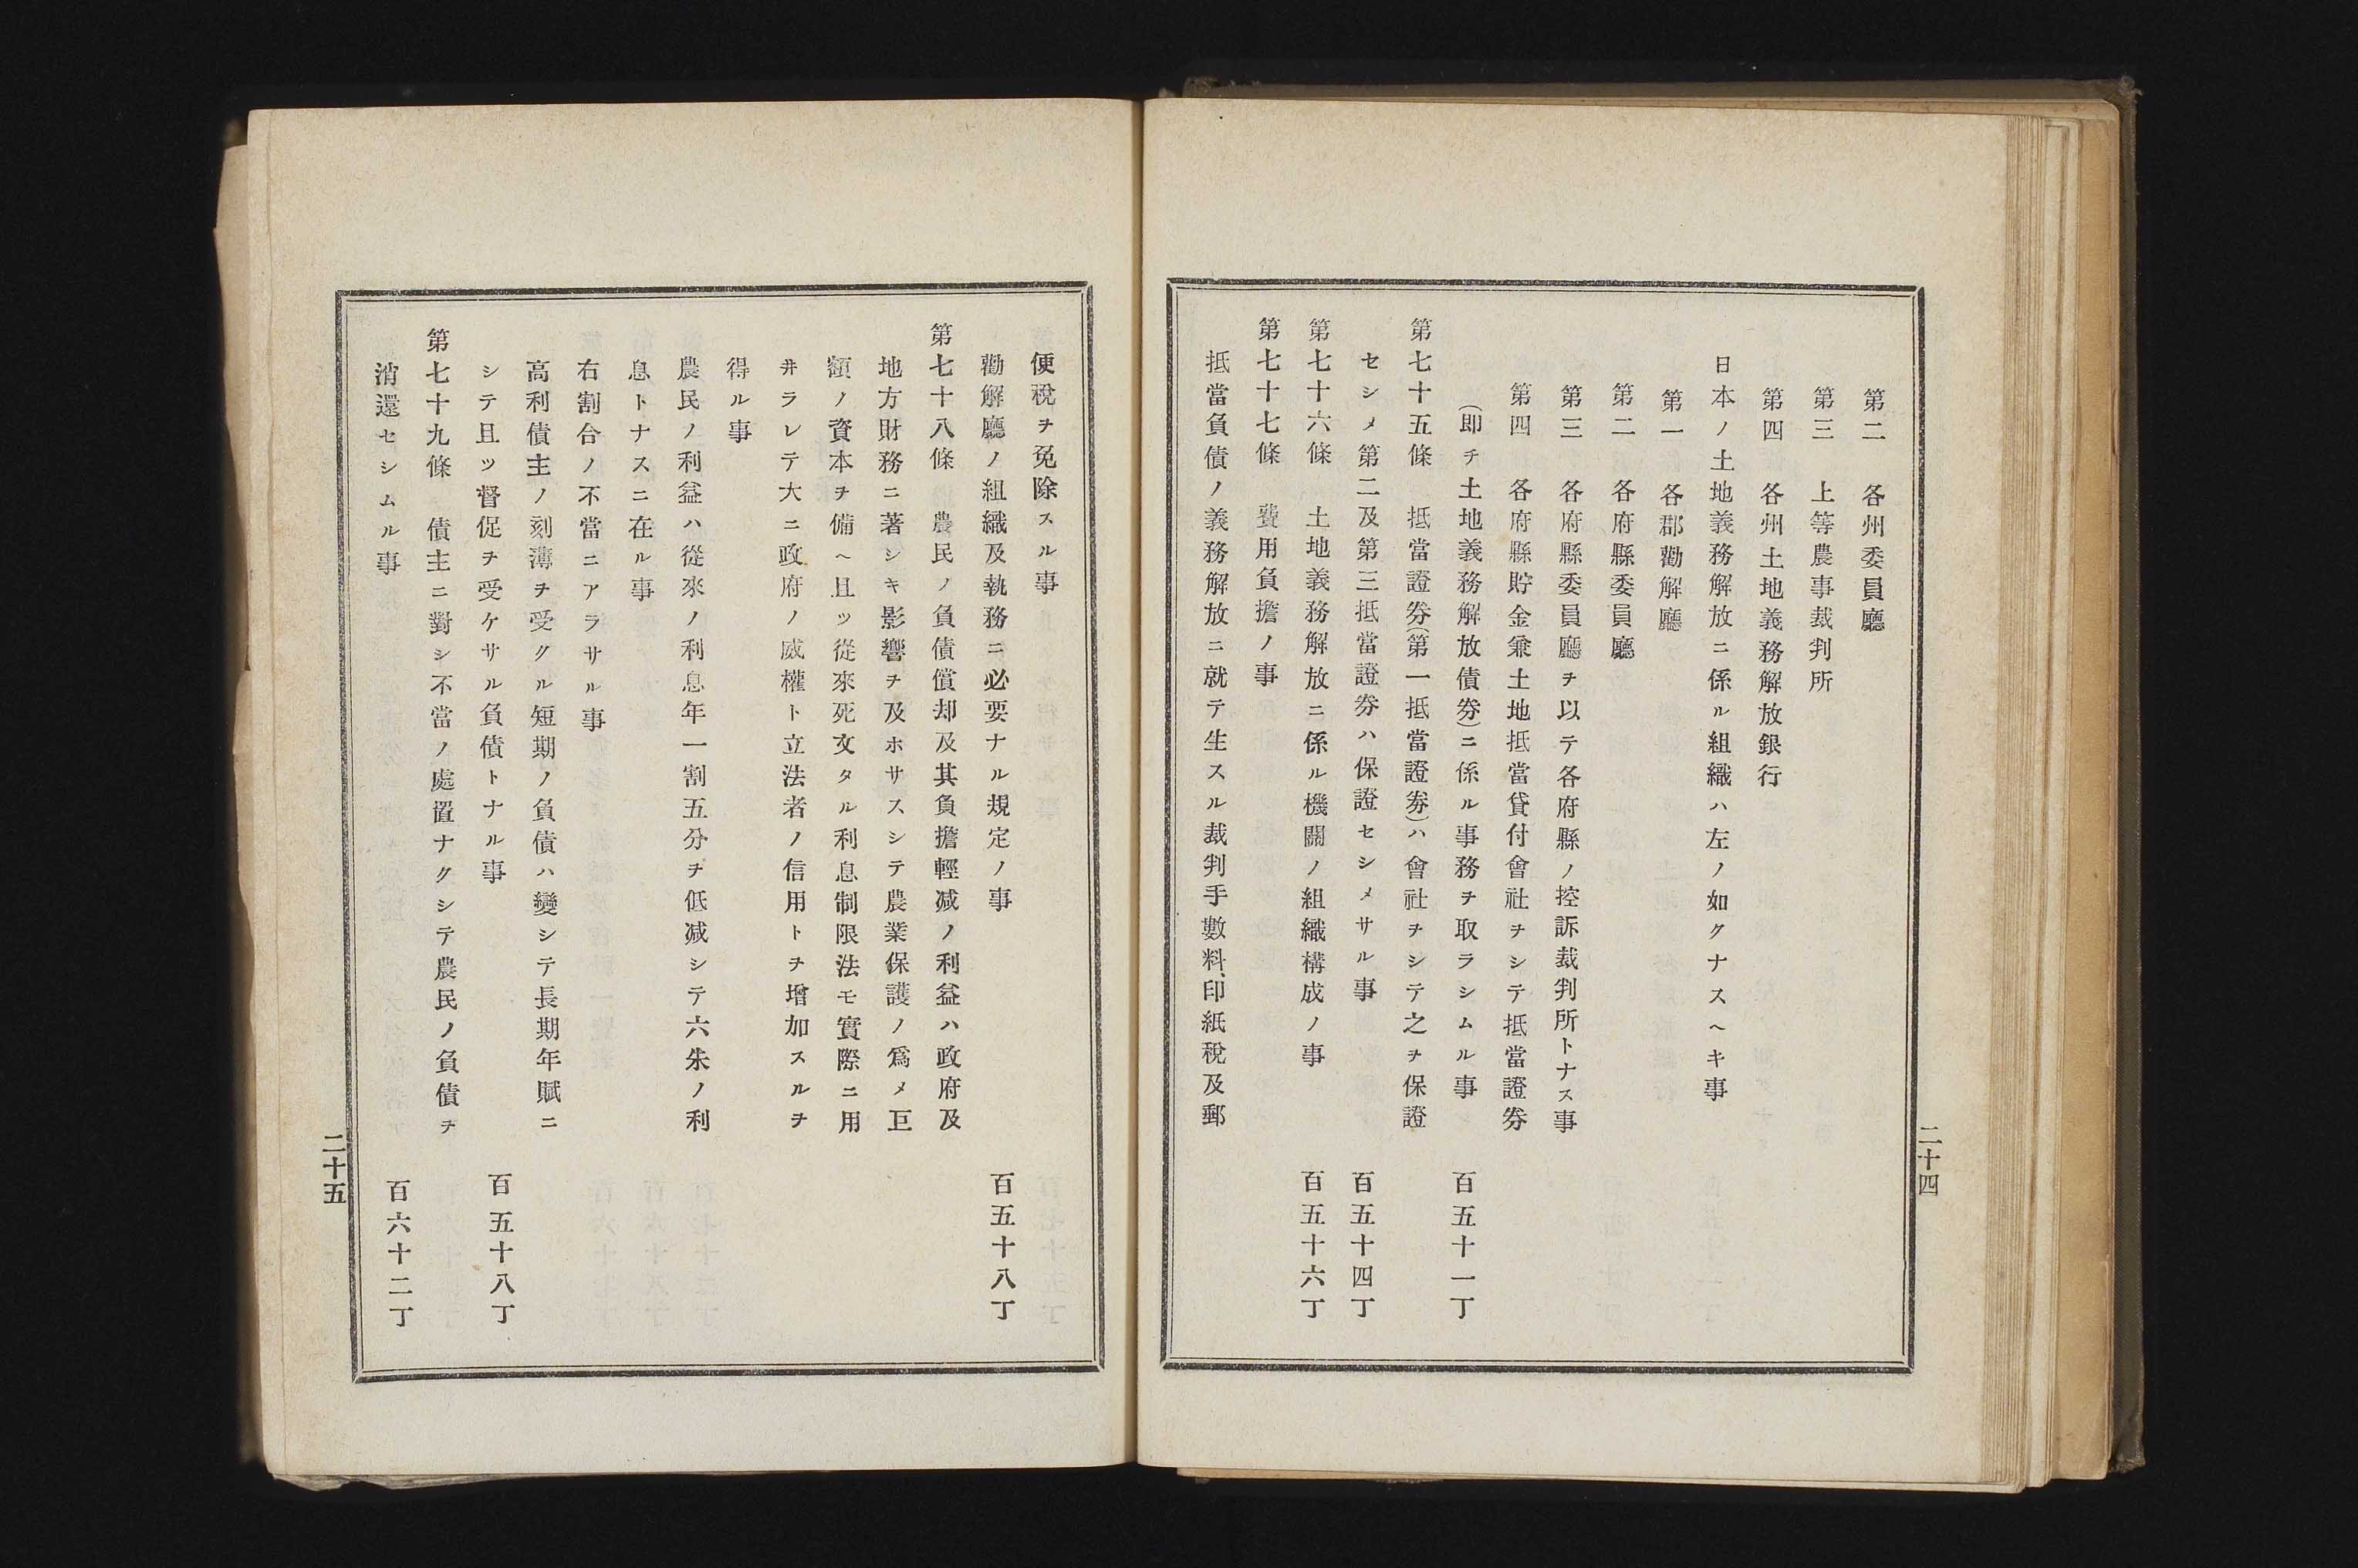 第二　各州委員廳
第三　上等農事裁判所
第四　各州土地義務解放銀行
日本ノ土地義務解放ニ係ル組織ハ左ノ如クナスヘキ事
第一　各郡勸解廳
第二　各府縣委員廳
第三　各府縣委員廳ヲ以テ各府縣ノ控訴裁判所トナス事
第四　各府縣貯金兼土地抵當貸付會社ヲシテ抵當證劵
（即チ土地義務解放債劵）ニ係ル事務ヲ取ラシムル事　百五十一丁
第七十五條　抵當證劵（第一抵當證劵）ハ會社ヲシテ之ヲ保證
セシメ第二及第三抵當證劵ハ保證セシメサル事　百五十四丁
第七十六條　土地義務解放ニ係ル機關ノ組織構成ノ事　百五十六丁
第七十七條　費用負擔ノ事
抵當負債ノ義務解放ニ就テ生スル裁判手數料、印紙稅及郵
二十四
便稅ヲ免除スル事
勸解廳ノ組織及執務ニ必要ナル規定ノ事　百五十八丁
第七十八條　農民ノ負債償却及其負擔輕减ノ利益ハ政府及
地方財務ニ著シキ影響ヲ及ホサスシテ農業保護ノ爲メ巨
額ノ資本ヲ備ヘ且ツ從來死文タル利息制限法モ實際ニ用
井ラレテ大ニ政府ノ威權ト立法者ノ信用トヲ增加スルヲ
得ル事
農民ノ利益ハ從來ノ利息年一割五分ヲ低减シテ六朱ノ利
息トナスニ在ル事
右割合ノ不當ニアラサル事
高利債主ノ刻薄ヲ受クル短期ノ負債ハ變シテ長期年賦ニ
シテ且ツ督促ヲ受ケサル負債トナル事　百五十八丁
第七十九條　債主ニ對シ不當ノ處置ナクシテ農民ノ負債ヲ
消還セシムル事　百六十二丁
二十五